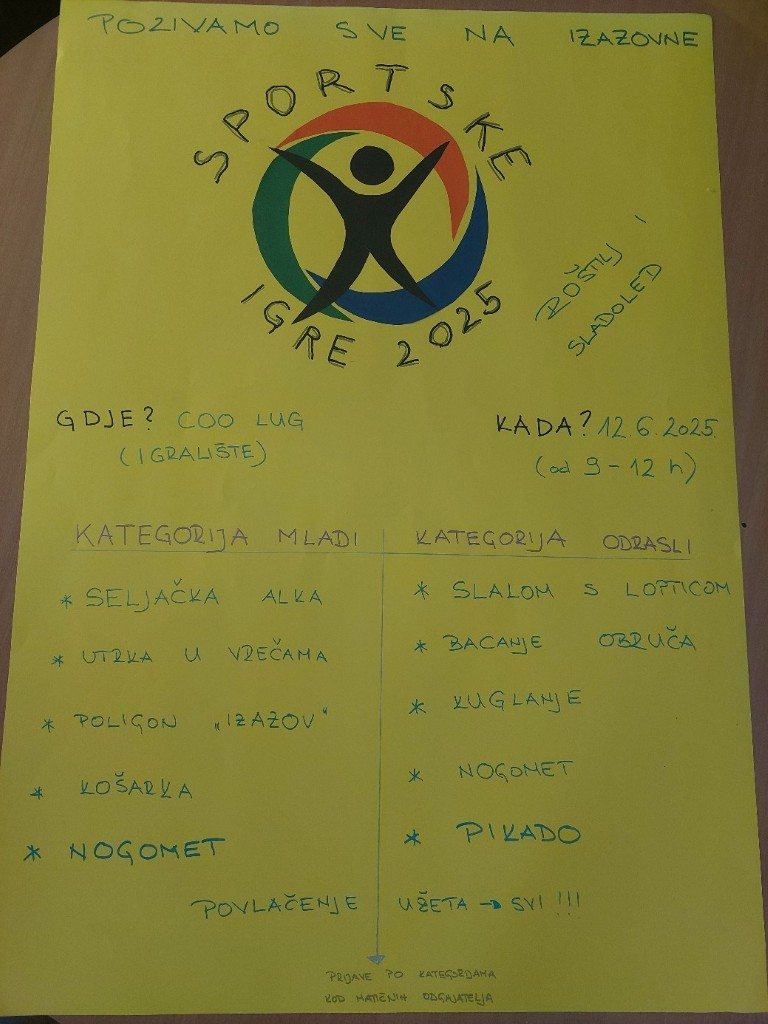 POZIVAMO SVE NA IZAZOVNE
SPORTSKE
IGRE 2025
ROŠTILJ I
SLADOLED
GDJE? COO LUG
(IGRALIŠTE)
KADA? 12.6.2025.
(od 9-12 h)
KATEGORIJA MLADI
* SELJAČKA ALKA
* UTRKA U VREĆAMA
* POLIGON „IZAZOV"
* KOŠARKA
* NOGOMET
KATEGORIJA ODRASLI
* SLALOM S LOPTICOM
* BACANJE OBRUČA
* KUGLANJE
* NOGOMET
* PIKADO
POVLAČENJE UŽETA → SVI !!!
PRIJAVE PO KATEGORIJAMA
KOD MATIČNIH ODGAJATELJA